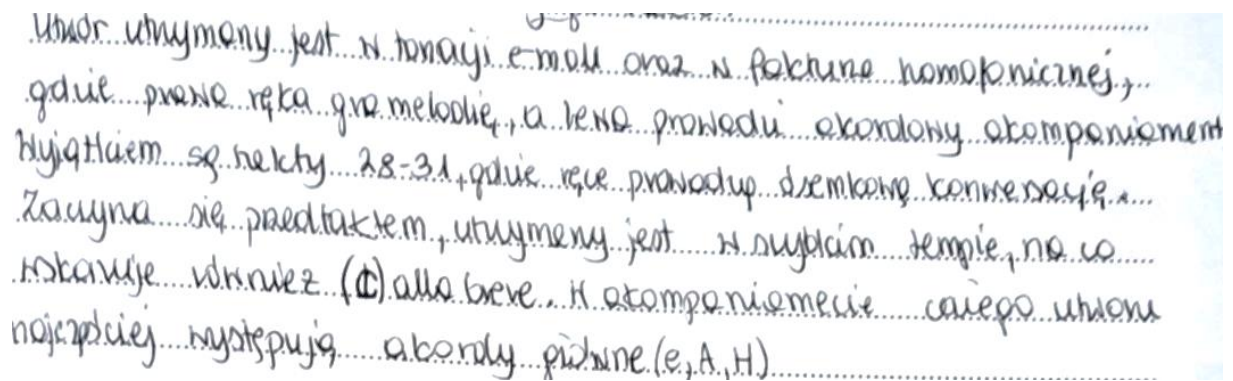 Utwór utrzymany jest w tonacji e-moll oraz w fakturze homofonicznej,
gdzie prawa ręka gra melodię, a lewa prowadzi akordowy akompaniament
Wyjątkiem są takty 28-31, gdzie ręce prowadzą ósemkową konwersację.
Zaczyna się przedtaktem, utrzymany jest w szybkim tempie, na co
wskazuje również (₵) alla breve. W akompaniamecie całego utworu
najczęściej występują akordy główne (e, A, H)